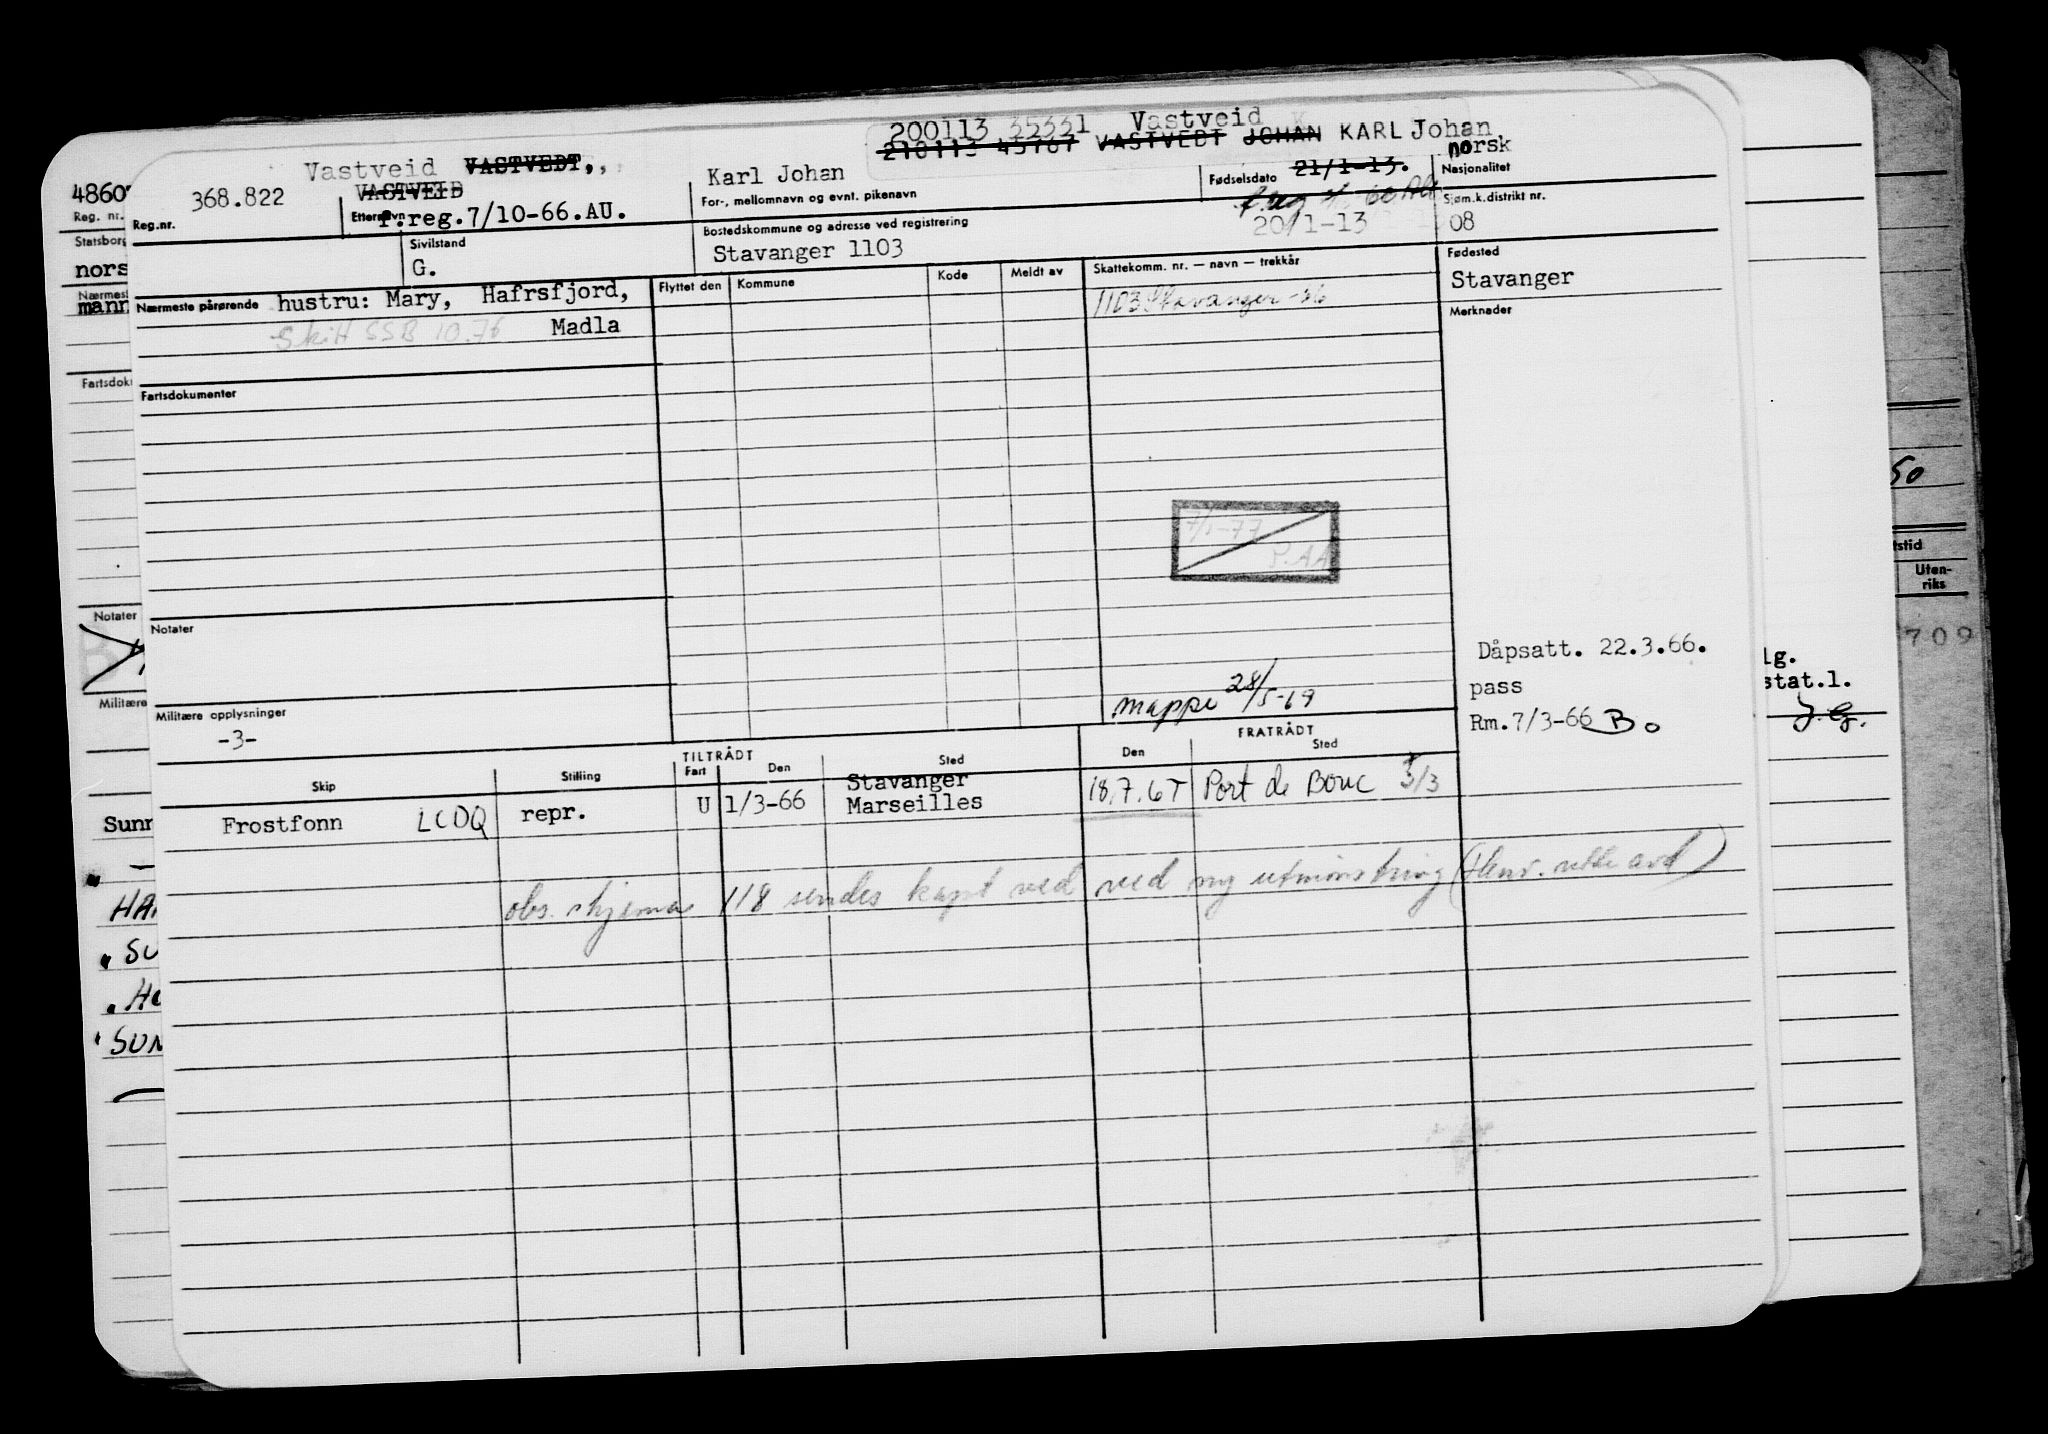 200113 35331 Vastveid
210113 45767 VASTVEDT JOHAN KARL Johan,
Vastveid VASTVEDT,, Karl Johan 21/1-13. norsk
368.822 VASTVEID
Reg.nr. Etternavn For-, mellomnavn og evnt. pikenavn Fødselsdato Nasjonalitet
F.reg.7/10-66.AU.
20/1-13 08
Sivilstand Bostedskommune og adresse ved registrering Sjøm.k.distrikt nr.
G. Stavanger 1103
Nærmeste pårørende hustru: Mary, Hafrsfjord, Flyttet den Kommune Kode Meldt av Skattekomm. nr. — navn — trekkår Fødested
Madla 1103 Stavanger -66 Stavanger
Skitt SSB 10.76 Merknader
Fartsdokumenter
7/1-77
P.AA
Notater
Dåpsatt. 22.3.66.
pass
Rm.7/3-66 B.
mappe 28/5-69
Militære opplysninger
-3-
TILTRÅDT FRATRÅDT
Skip Stilling Fart Den Sted Den Sted
Frostfonn LCDQ repr. U 1/3-66 Stavanger
Marseilles 18.7.67 Port de Bouc 3/3
obs. skjema 118 sendes kapt ved ved ny utmønstring
48607
Reg. nr.
Statsborg
nors
Nærmest
mann
Fartsdoku
Notater
Militære
Sunn
HA
" SU
" Ho
" SUN
50
tstid
Uten-
riks
709
lg.
stat.l.
J.G.